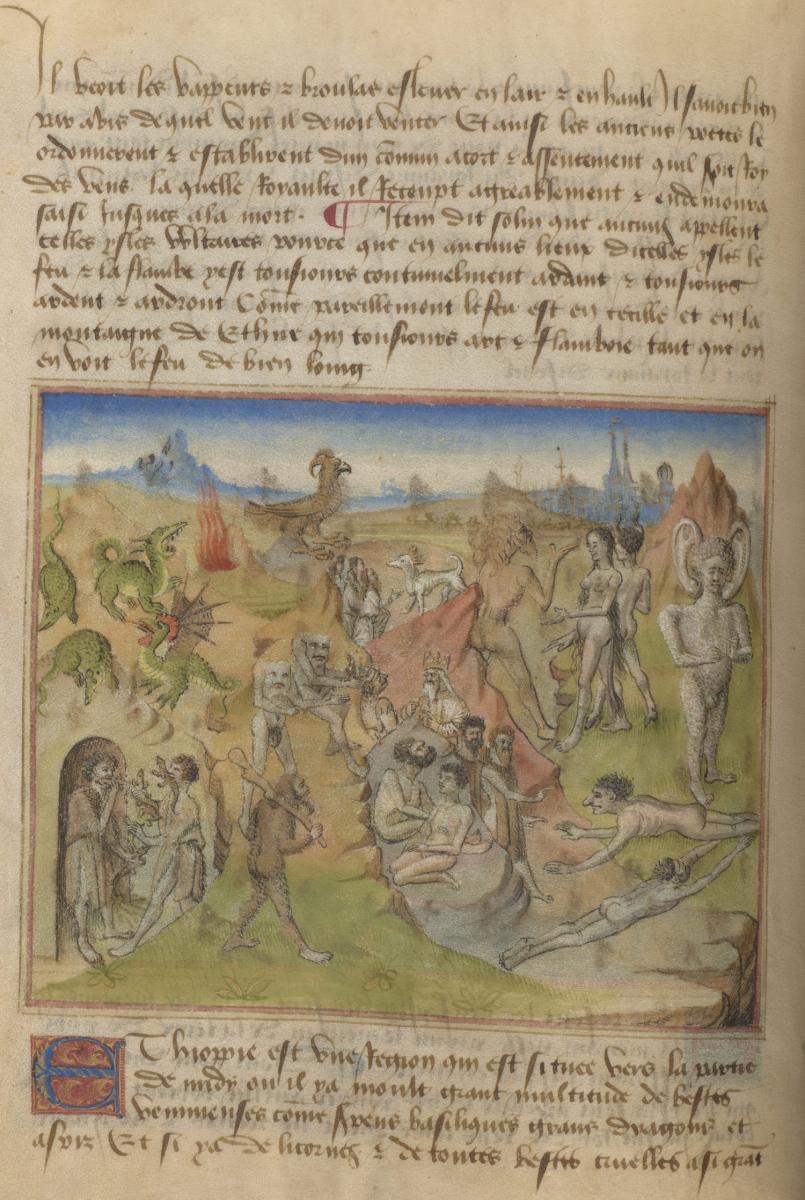 Il veoit les vappeurs ⁊ broulas eslever en lair ⁊ en hault Il savoit bien
par avis de quel vent il devoit venter Et ainsi les anciens poetes le
ordonnerent ⁊ establirent dun cōmun acort ⁊ assentement quil soit Roy
des vens. la quelle Royaulte il Receupt agreablement ⁊ en demoura
saisi Jusques a la mort. ¶ Item dit solin que aucuns appellent
celles ysles Vltaires pource que en aucuns lieux dicelles ysles le
feu ⁊ la flambe y est tousiours continuelment ardant ⁊ tousiours
ardent ⁊ ardront Cōme pareillement le feu est en cecille et en la
montaigne de Ethne qui tousiours art ⁊ flamboie tant que on
en voit le feu de bien loing
Ethioppie est vne Region qui est situee vers la partie
de midy ou il ya moult grant multitude de bestes
venimeuses cōme serpens basiliques grans dragons et
aspiz Et si ya de licornes ⁊ de toutes bestes cruelles a si grāt